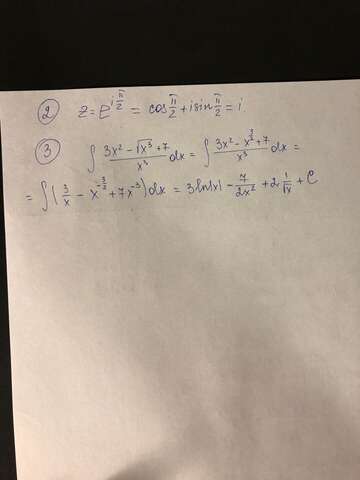 ② z = e^{i π/2} = cos π/2 + i sin π/2 = i
③ ∫ (3x² - √x³ + 7)/x³ dx = ∫ (3x² - x^{3/2} + 7)/x³ dx =
= ∫ (3/x - x^{-3/2} + 7x^{-3}) dx = 3 ln|x| - 7/(2x²) + 2 1/√x + C